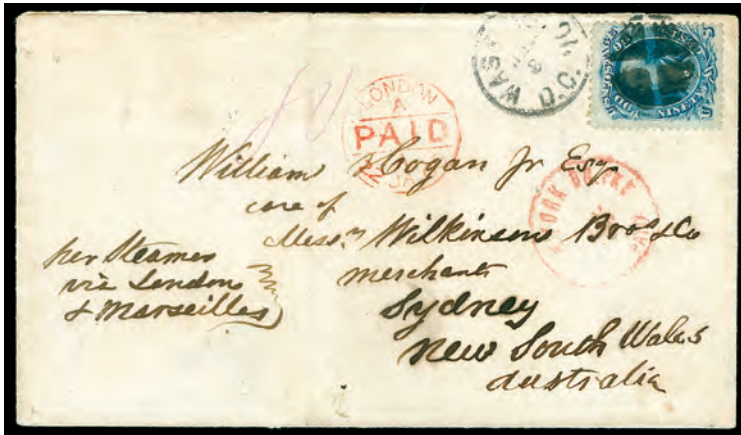 WAS D.C.
U.S. POSTAGE
LONDON
A
PAID
William Hogan Jr Esq
care of
Messrs Wilkinson Bros & Co
merchants
Sydney
New South Wales
Australia
per Steamer
via London
& Marseilles
YORK
PAID